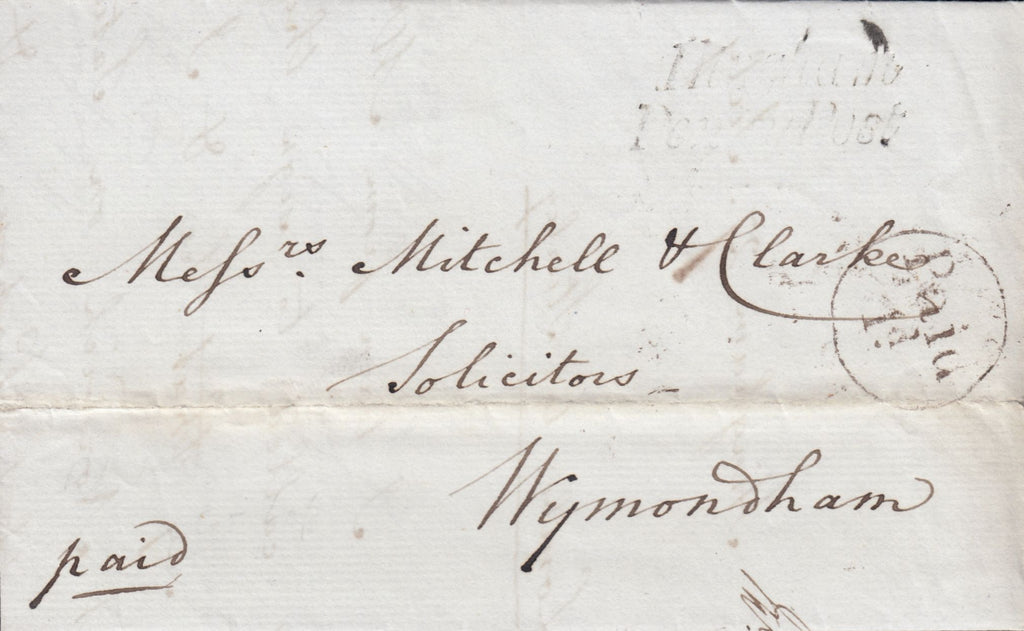 Penny Post
Messrs. Mitchell & Clarke
Solicitors
Wymondham
paid
Paid